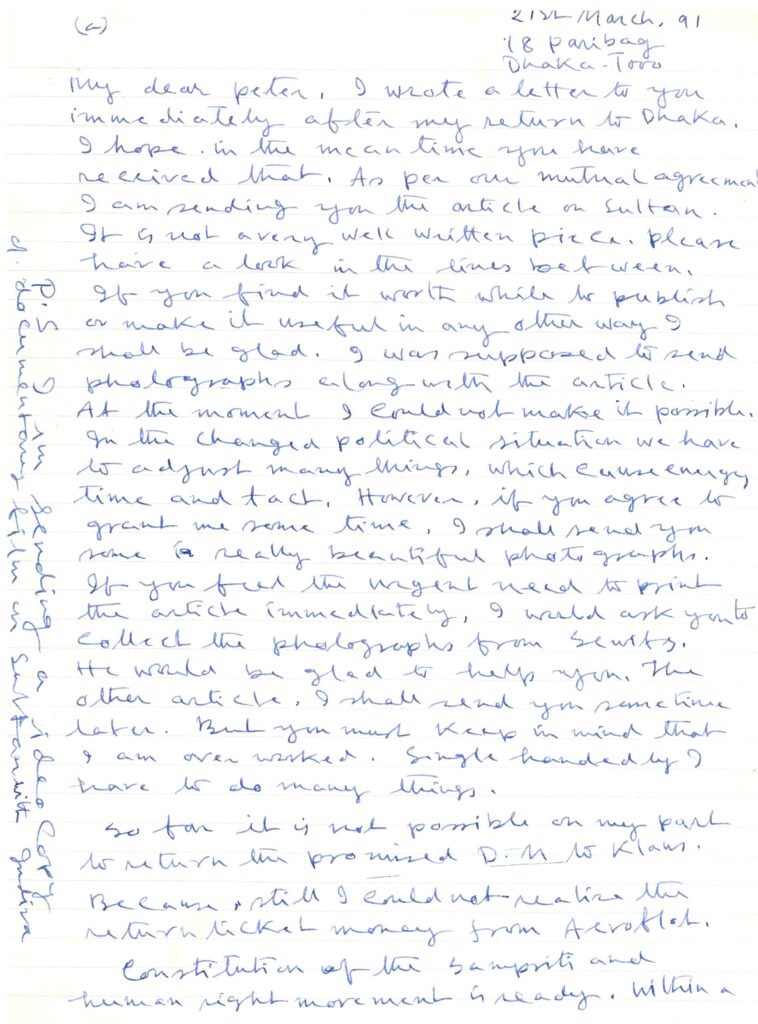 (a)
21st March, 91
18 paribag
Dhaka-1000
My dear peter, I wrote a letter to you
immediately after my return to Dhaka.
I hope in the mean time you have
received that. As per our mutual agreement
I am sending you the article on Sultan.
It is not a very well written piece. please
have a look in the lines between.
If you find it worth while to publish
or make it useful in any other way I
shall be glad. I was supposed to send
photographs along with the article.
At the moment I could not make it possible.
In the changed political situation we have
to adjust many things, which cause energy
time and tact. However, if you agree to
grant me some time, I shall send you
some really beautiful photographs.
If you feel the urgent need to print
the article immediately, I would ask you to
collect the photographs from
He would be glad to help you. The
other article, I shall send you sometime
later. But you must keep in mind that
I am over worked. Single handedly I
have to do many things.
So far it is not possible on my part
to return the promised D.M to Klaus.
Because, still I could not realize the
return ticket money from Aeroflot.
Constitution of the Sampriti and
human right movement is ready. Within a
P.S I am sending a video copy
of documentary film on Sultan with Indira